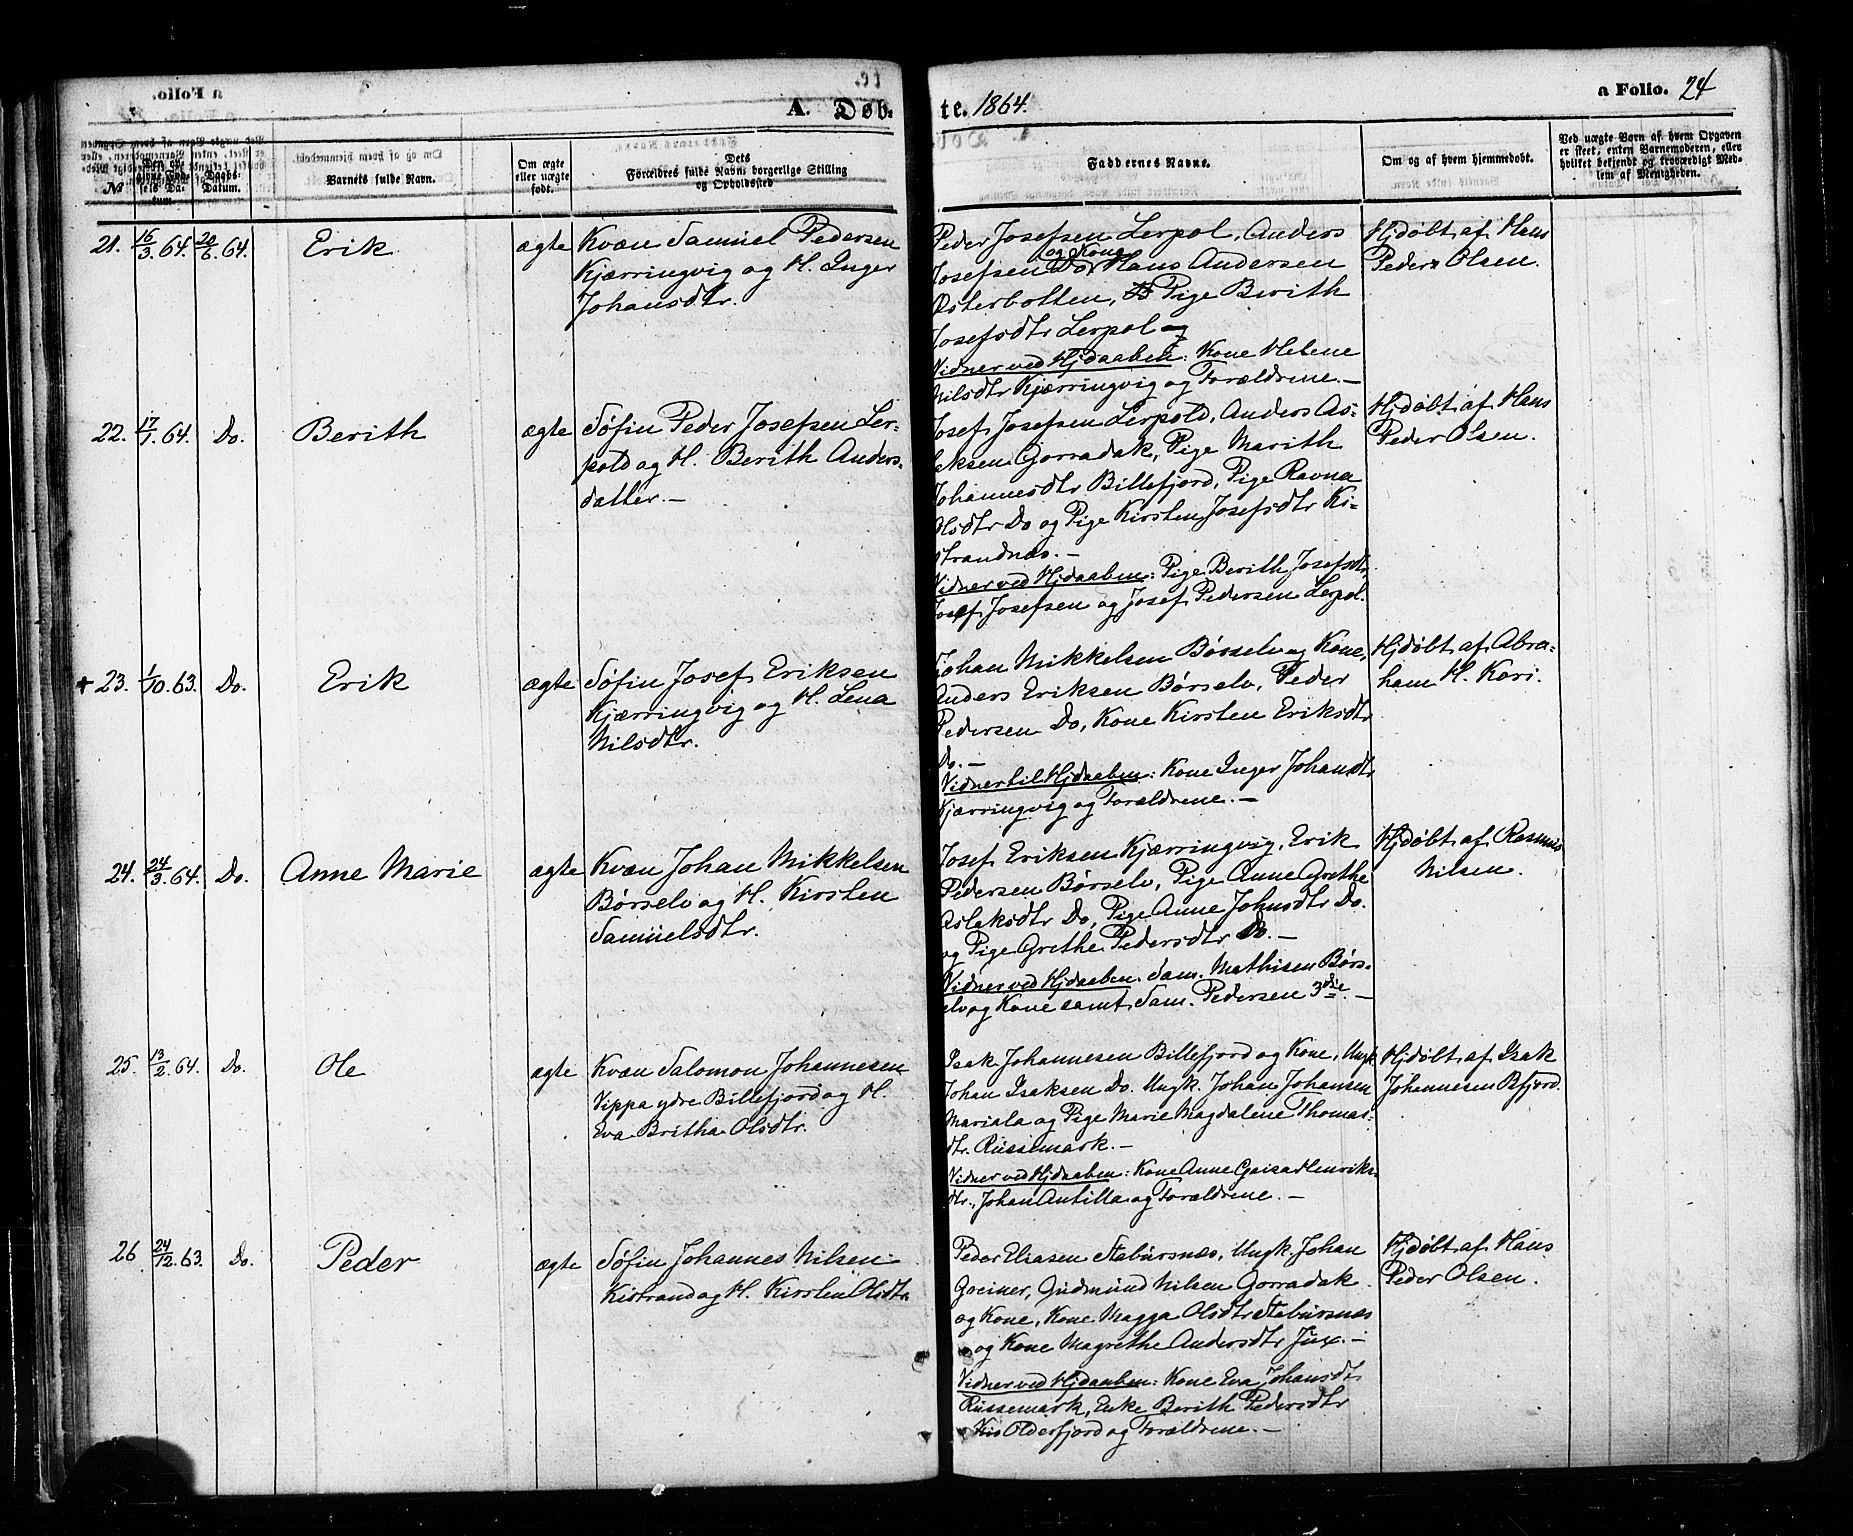 a Folio.
A. Døb-
te. 1864.
a Folio. 24
№
Den opgivne Fødsels Datum.
Daabs-Datum.
Barnets fulde Navn.
Om ægte eller uægte født.
Dets Forældres fulde Navn borgerlige Stilling og Opholdssted
Faddernes Navne.
Om og af hvem hjemmedøbt.
Ved uægte Barn af hvem Opgaven er skeet, enten Barnemoderen, eller hvilket bekjendt og troværdigt Medlem af Menigheden.
21. 16/3 64. 20/6 64. Erik ægte Kvæn Samuel Pedersen
Kjærringvig og H. Inger
Johansdtr.
Peder Josefsen Lerpol, Anders
og Kone
Josefsen Do, Hans Andersen
Østerbotten, Pige Berith
Josefsdtr Lerpol og
Vidner ved Hjdaaben: Kone Helene
Nilsdtr Kjærringvig og Forældrene. —
Hjdøbt af Hans
Peder Olsen.
22. 17/1 64. Do. Berith ægte Søfin Peder Josefsen Ler-
pold og H. Berith Anders-
datter. —
Josef Josefsen Lerpold, Anders As-
leksen Gorradak, Pige Marith
Johannesdtr Billefjord, Pige Ravna
Olsdtr Do og Pige Kirsten Josefsdtr Ki-
strandnæs. —
Vidner ved Hjdaaben: Pige Berith Josefsdtr,
Josef Josefsen og Josef Pedersen Lerpol.
Hjdøbt af Hans
Peder Olsen.
+ 23. 1/10 63. Do. Erik ægte Søfin Josef Eriksen
Kjærringvig og H. Lena
Nilsdtr.
Johan Mikkelsen Børselv og Kone,
Anders Eriksen Børselv, Peder
Pedersen Do, Kone Kirsten Eriksdtr
Do. —
Vidner til Hjdaaben: Kone Inger Johansdtr
Kjærringvig og Forældrene. —
Hjdøbt af Abra-
ham H. Kari.
24. 24/3 64. Do. Anne Marie ægte Kvæn Johan Mikkelsen
Børselv og H. Kirsten
Samuelsdtr.
Josef Eriksen Kjærringvig, Erik
Pedersen Børselv, Pige Anne Grethe
Aslaksdtr Do, Pige Anne Johnsdtr Do.
og Pige Grethe Pedersdtr Do. —
Vidner ved Hjdaaben. Sam. Mathisen Børs-
elv og Kone samt Sam. Pedersen 3die. —
Hjdøbt af Rasmus
Nilsen.
25. 13/2 64. Do. Ole ægte Kvæn Salomon Johannesen
Vippa ydre Billefjord og H.
Eva Britha Olsdtr.
Isak Johannesen Billefjord og Kone, Ungk.
Johan Isaksen Do. Ungk. Johan Johansen
Mariala og Pige Marie Magdalene Thomas-
dtr. Russemark. —
Vidner ved Hjdaaben: Kone Anne Gaisa Henriks-
dtr., Johan Antilla og Forældrene. —
Hjdøbt af Isak
Johannesen Bfjord.
26 24/12 63. Do. Peder ægte Søfin Johannes Nilsen
Kistrand og H. Kirsten Olsdtr.
Peder Eliasen Stabursnæs, Ungk. Johan
Greiner, Gudmund Nilsen Gorradak
og Kone, Kone Magga Olsdtr Stabursnæs
og Kone Magrethe Andersdtr Jux. —
Vidner ved Hjdaaben: Kone Eva Johansdtr
Russemark, Enke Berith Pedersdtr
Olderfjord og Forældrene. —
Hjdøbt af Hans
Peder Olsen.